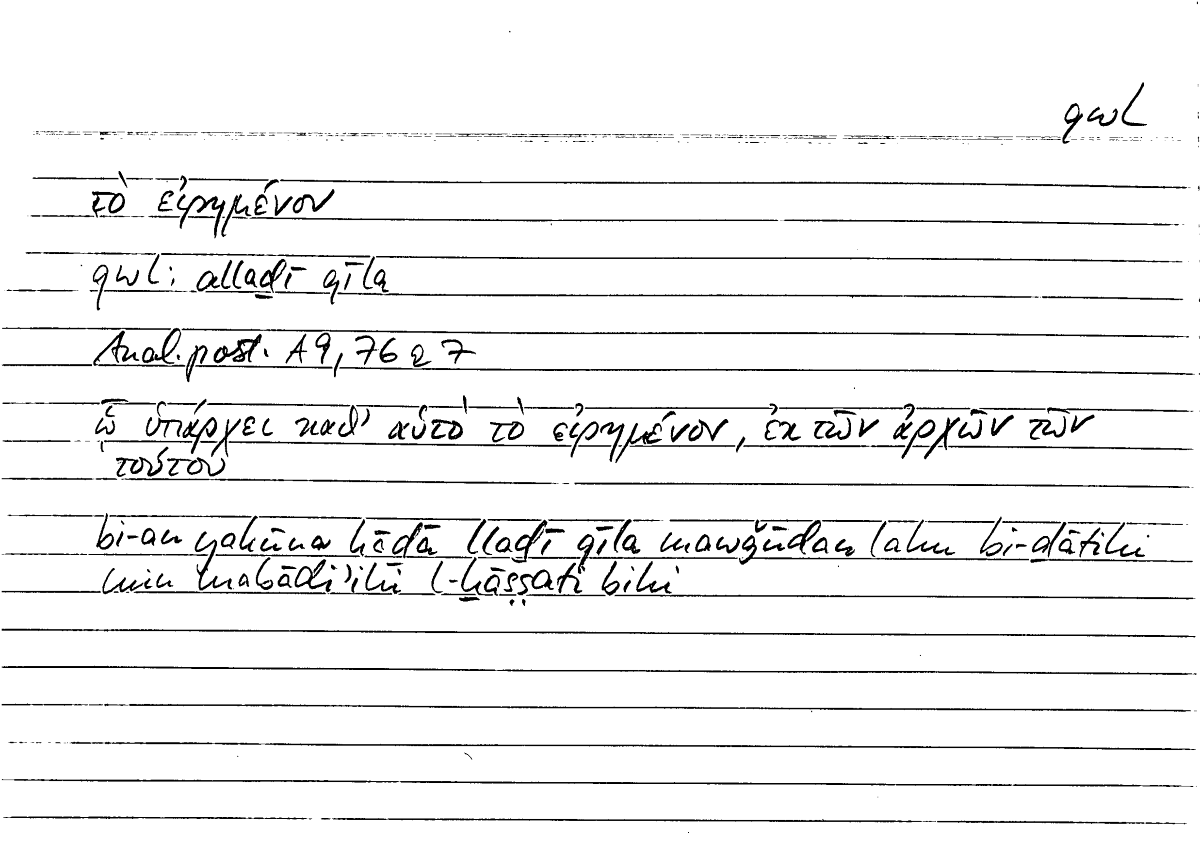 qwl
τὸ εἰρημένον
qwl: allaḏī qīla
Anal. post. A 9, 76 a 7
ᾧ ὑπάρχει καθ' αὑτὸ τὸ εἰρημένον, ἐκ τῶν ἀρχῶν τῶν
τούτου
bi-an yakūna hāḏā llaḏī qīla mawǧūdan lahu bi-ḏātihi
min mabādi'ihī l-ḫāṣṣati bihi